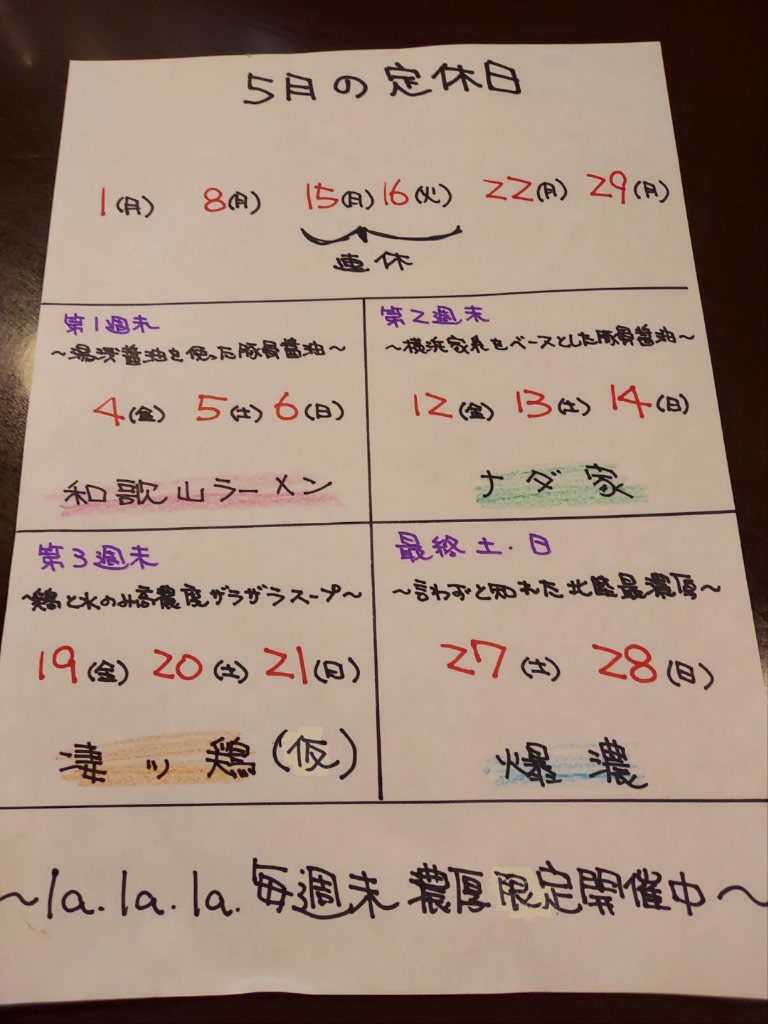 5月の定休日
1(月) 8(月) 15(月) 16(火) 22(月) 29(月)
連休
第1週末
~湯浅醤油を使った豚骨醤油~
4(金) 5(土) 6(日)
和歌山ラーメン
第2週末
~横浜家系をベースとした豚骨醤油~
12(金) 13(土) 14(日)
ナダ家
第3週末
~鶏と水のみ高濃度ザラザラスープ~
19(金) 20(土) 21(日)
凄ッ鶏(仮)
最終土・日
~言わずと知れた北陸最濃厚~
27(土) 28(日)
爆濃
~la.la.la.毎週末濃厚限定開催中~